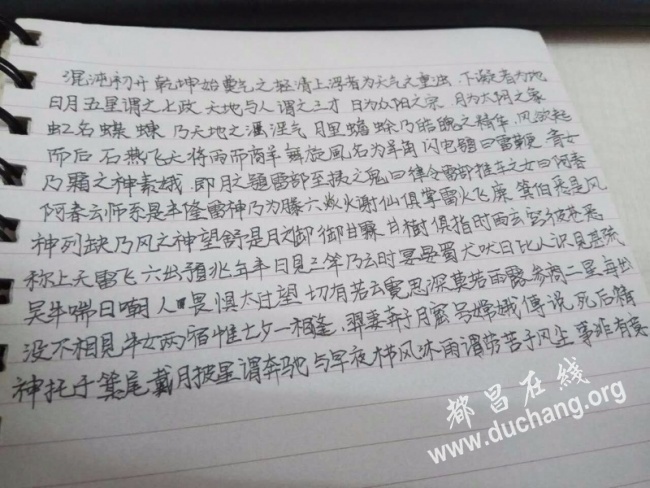 混沌初开 乾坤始奠气之轻清上浮者为天气之重浊 下凝者为地
日月五星谓之七政 天地与人谓之三才 日为众阳之宗 月为太阴之象
虹名蝶蝀 乃天地之淫气 月里蟾蜍乃皓魄之精华 风欲起
而后 石燕飞天将雨而商羊舞旋風名为羊角闪电號曰雷鞭 青女
乃霜之神素娥 即月之號雷部至捷之鬼曰律令雷部推车之女曰阿香
阿香云师系是丰隆雷神乃为滕六火谢仙俱掌雷火飞廉 箕伯悉是风
神列缺乃风之神望舒是月之御 御甘霖 甘樹俱指时雨玄穹彼苍悉
称上天雷飞六出預兆年丰日見三竿乃云时宴蜀犬吠日比人识見甚稀
吴牛喘日嘲人畏惧太甘望切有若云霓思深莫若雨露参商二星每出
没不相見牛女两宿惟七夕一相逢 羿妻奔于月窟号嫦娥傅说死后精
神托于箕尾戴月披星谓奔馳与早夜栉风沐雨谓劳苦于风尘事非有
都昌在线
www.duchang.org